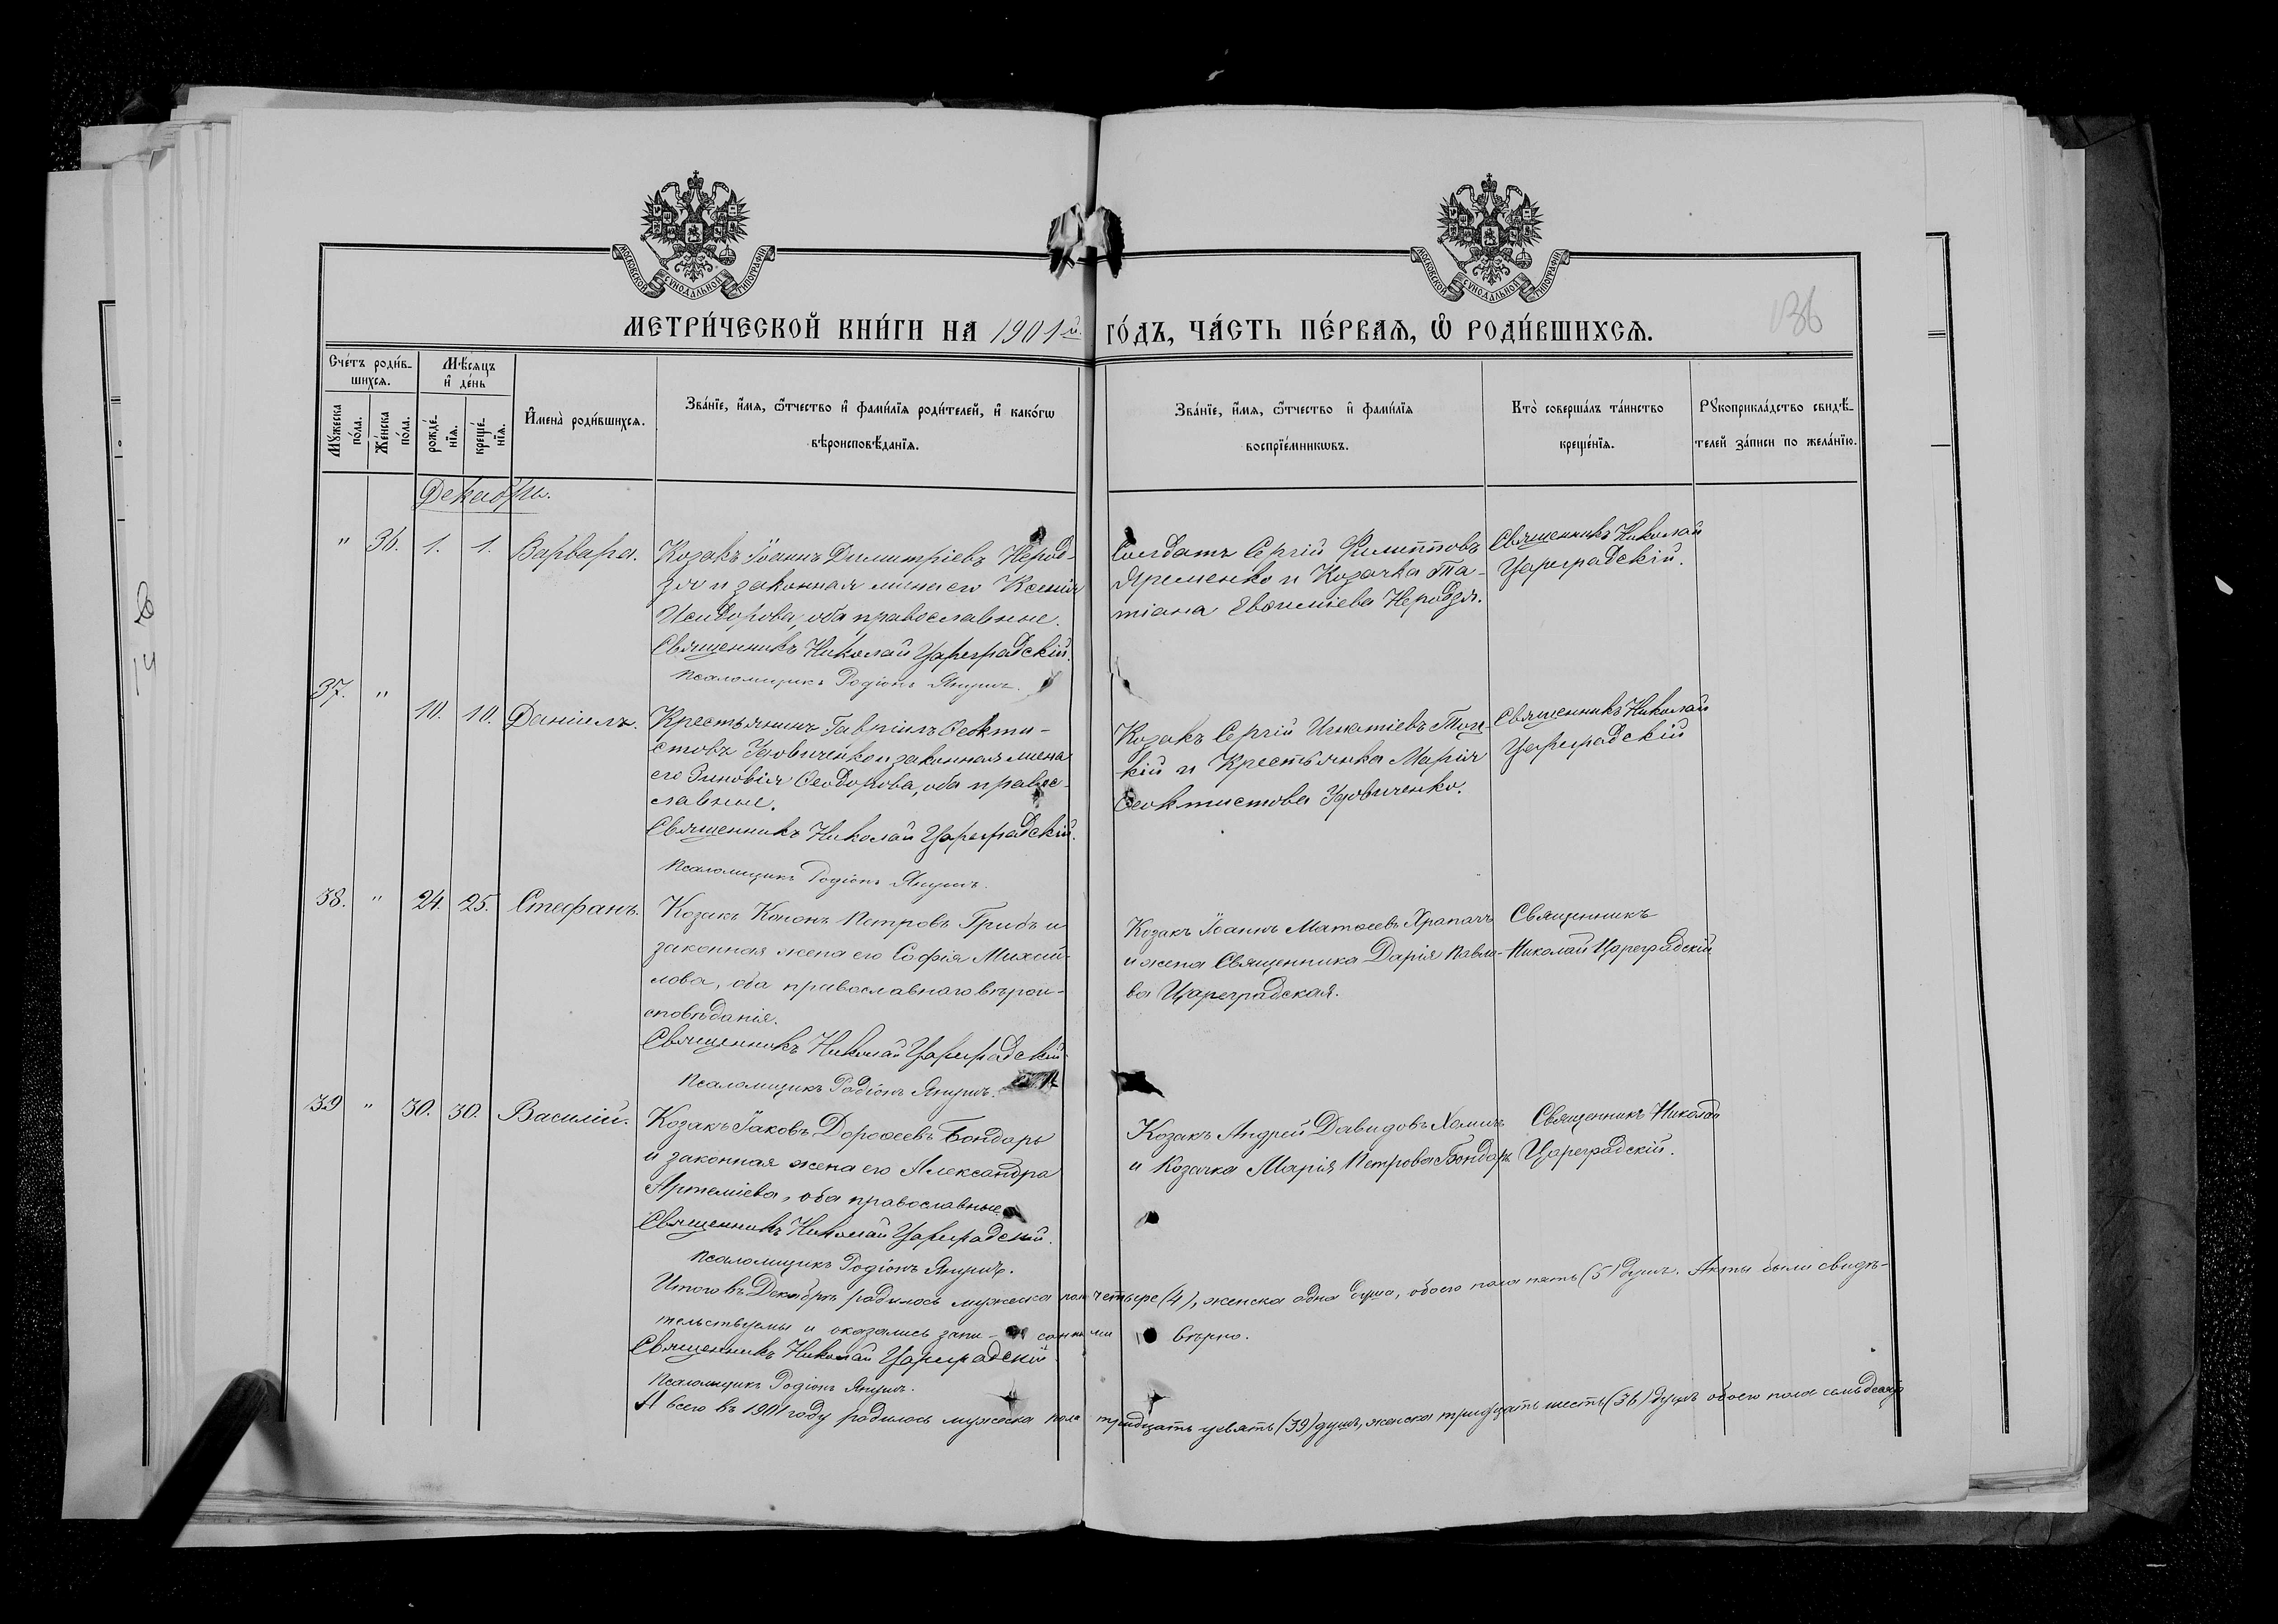 МОСКОВСКОЙ СУНОДАЛЬНОЙ ТИПОГРАФІИ
МОСКОВСКОЙ СУНОДАЛЬНОЙ ТИПОГРАФІИ
МЕТРИ́ЧЕСКОЙ КНИ́ГИ НА 1901 й. ГО́ДЪ, ЧА́СТЬ ПЕ́РВАЯ, Ѡ РОДИ́ВШИХСЯ.
136
Сче́тъ роди́в-
шихся.
Мѣ́сяцъ
и де́нь
Мꙋжеска по́ла.
Же́нска по́ла.
рожде́-нія.
креще́-нія.
Имена̀ роди́вшихся.
Зва́ніе, и́мя, ѻ́тчество и фами́лія роди́телей, и како́гѡ
вѣроисповѣ́данія.
Зва́ніе, и́мя, ѻ́тчество и фами́лія
воспріе́мникѡвъ.
Кто̀ соверша́лъ та́инство
креще́нія.
Рꙋкоприкла́дство свидѣ́-
телей за́писи по жела́нію.
Декабрь.
" 36. 1. 1. Варвара.
Козакъ Іоаннъ Димитріевъ Нерод-
зя и законная жена его Ксенія
Исидорова, оба православные.
Священникъ Николай Цареградскій.
Псаломщикъ Родіонъ Янушъ.
Солдатъ Сергій Филипповъ
Яременко и Козачка Та-
тіана Евѳиміева Неродзя.
Священникъ Николай
Цареградскій.
37. " 10. 10. Даніилъ.
Крестьянинъ Гавріилъ Ѳеокти-
стовъ Удовиченко и законная жена
его Зиновія Ѳеодорова, оба правос-
славные.
Священникъ Николай Цареградскій.
Псаломщикъ Родіонъ Янушъ.
Козакъ Сергій Игнатіевъ
кій и Крестьянка Марія
Ѳеоктистова Удовиченко.
Священникъ Николай
Цареградскій
38. " 24. 25. Стефанъ.
Козакъ Кононъ Петровъ Грибъ и
законная жена его Софія Михай-
лова, оба православнаго вѣрои-
сповѣданія.
Священникъ Николай Цареградскій
Псаломщикъ Родіонъ Янушъ.
Козакъ Іоаннъ Матѳеевъ Храпачъ
и жена Священника Дарія Павло-
ва Цареградская.
Священникъ
Николай Цареградскій
39 " 30. 30. Василій.
Козакъ Іаковъ Дороѳеевъ Бондарь
и законная жена его Александра
Артеміева, оба православные
Священникъ Николай Цареградскій.
Псаломщикъ Родіонъ Янушъ.
Козакъ Андрей Давидовъ Хомичъ
и Козачка Марія Петрова Бондарь
Священникъ Николай
Цареградскій.
Итого въ Декабрѣ родилось мужеска пола четыре (4), женска одна душа, обоего пола пять (5) душъ. Акты были свидѣ-
тельствуемы и оказались запи-санными вѣрно.
Священникъ Николай Цареградскій
Псаломщикъ Родіонъ Янушъ.
А всего въ 1901 году родилось мужеска пола тридцать девять (39) душъ, женска тридцать шесть (36) душъ обоего пола семьдесятъ